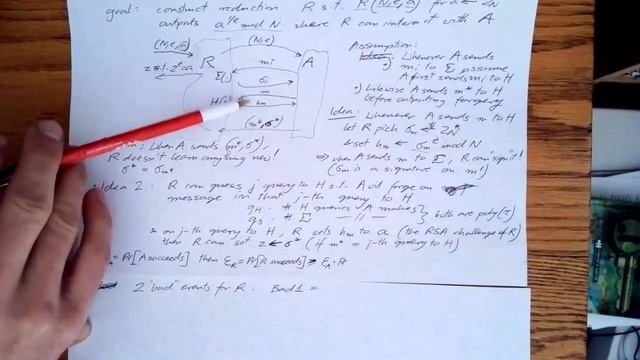 goal: construct reduction R s.t. R(N,e,a) for a ← Z_N
outputs a^{1/e} mod N where R can interact with A
(N,e,a)
(N,e)
R
A
z s.t. z^e = a
m_i
Σ(·)
σ_i
m
H(·)
h_m
(m*,σ*)
Assumption:
Whenever A sends
m_i to Σ assume
A first sends m_i to H
·) Likewise A sends m* to H
before outputting forgery
Idea: Whenever A sends m to H
let R pick σ_m ← Z_N*
& set h_m ← σ_m^e mod N
⇒ when A sends m to Σ, R can "sign" it!
(σ_m is a signature on m!)
when A sends (m*,σ*),
R doesn't learn anything new!
σ* = σ_m*
Idea 2: R can guess j query to H s.t. A will forge on
message in that j-th query to H
q_H: # H queries A makes
q_S: # Σ — 11 —
both are poly(τ)
& on j-th query to H, R sets h_m to a (the RSA challenge of R)
then R can set z ← σ* (if m* = j-th query to H)
= Pr[A succeeds] then ε_R = Pr[R succeeds] ≥ ε_A ·
2 "bad" events for R: Bad1 =